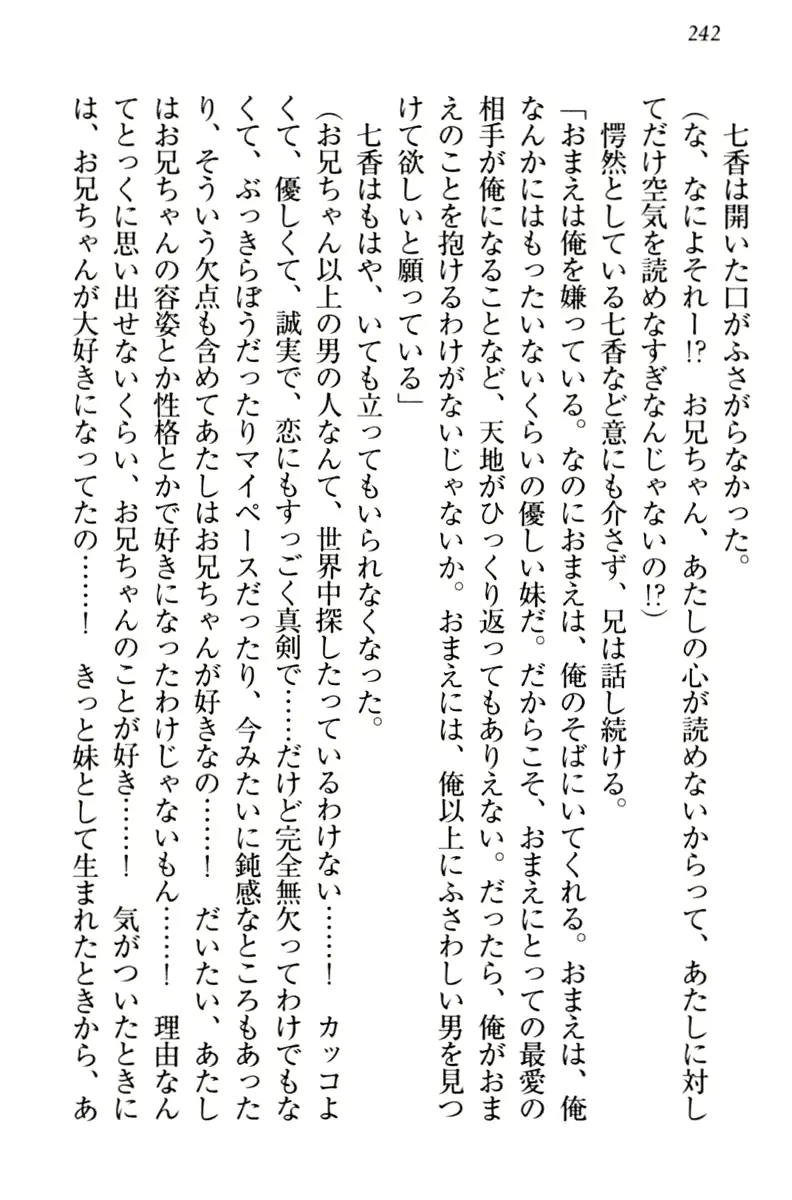 242
七香は開いた口がふさがらなかった。
（な、なによそれー!?　お兄ちゃん、あたしの心が読めないからって、あたしに対し
てだけ空気を読めなすぎなんじゃないの!?）
愕然としている七香など意にも介さず、兄は話し続ける。
「おまえは俺を嫌っている。なのにおまえは、俺のそばにいてくれる。おまえは、俺
なんかにはもったいないくらいの優しい妹だ。だからこそ、おまえにとっての最愛の
相手が俺になることなど、天地がひっくり返ってもありえない。だったら、俺がおま
えのことを抱けるわけがないじゃないか。おまえには、俺以上にふさわしい男を見つ
けて欲しいと願っている」
七香はもはや、いても立ってもいられなくなった。
（お兄ちゃん以上の男の人なんて、世界中探したっているわけない……！　カッコよ
くて、優しくて、誠実で、恋にもすっごく真剣で……だけど完全無欠ってわけでもな
くて、ぶっきらぼうだったりマイペースだったり、今みたいに鈍感なところもあった
り、そういう欠点も含めてあたしはお兄ちゃんが好きなの……！　だいたい、あたし
はお兄ちゃんの容姿とか性格とかで好きになったわけじゃないもん……！　理由なん
てとっくに思い出せないくらい、お兄ちゃんのことが好き……！　気がついたときに
は、お兄ちゃんが大好きになってたの……！　きっと妹として生まれたときから、あ